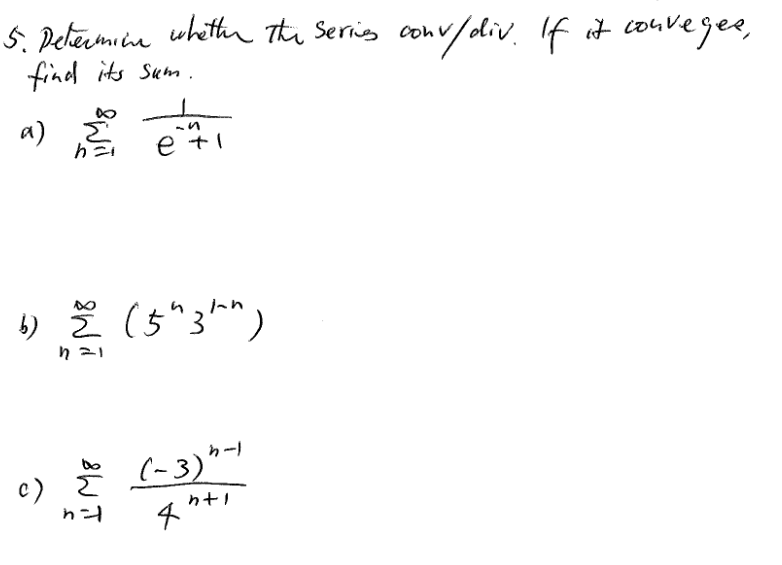 5. Determine whether the series conv/div. If it converges,
find its sum.
a) ∑_{n=1}^{∞} 1/(e^{-n}+1)
b) ∑_{n=1}^{∞} (5^n 3^{1-n})
c) ∑_{n=1}^{∞} (-3)^{n-1}/4^{n+1}